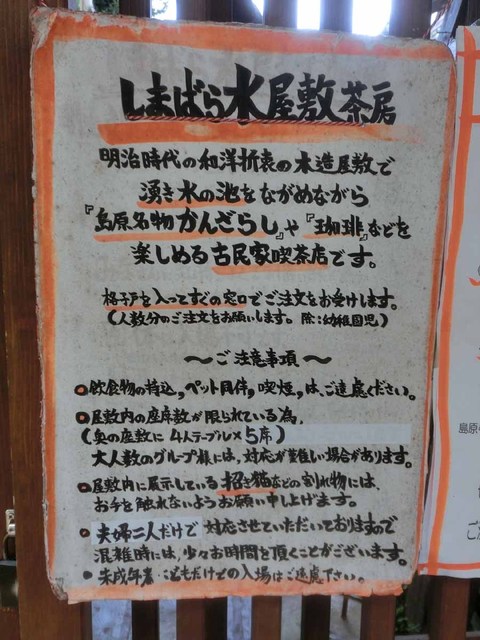 しまばら水屋敷茶房
明治時代の和洋折衷の木造屋敷で
湧き水の池をながめながら
『島原名物かんざらし』や『珈琲』などを
楽しめる古民家喫茶店です。
格子戸を入ってすぐの窓口でご注文をお受けします。
(人数分のご注文をお願いします。除:幼稚園児)
〜ご注意事項〜
飲食物の持込,ペット同伴,喫煙,は、ご遠慮ください。
屋敷内の座席数が限られている為、
(奥の座敷に4人テーブル×5席)
大人数のグループ様には、対応が難しい場合があります。
屋敷内に展示している招き猫などの割れ物には、
お手を触れないようお願い申し上げます。
夫婦二人だけで対応させていただいておりますので
混雑時には、少々お時間を頂くことがございます。
未成年者・こどもだけでの入場はご遠慮下さい。
島原